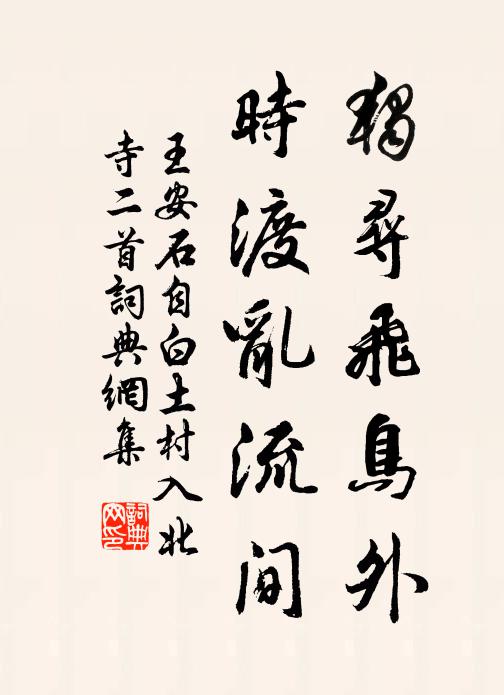 獨尋飛鳥外
時渡亂流間
王安石自白土村入北
寺二首詞典網集
詞典網印